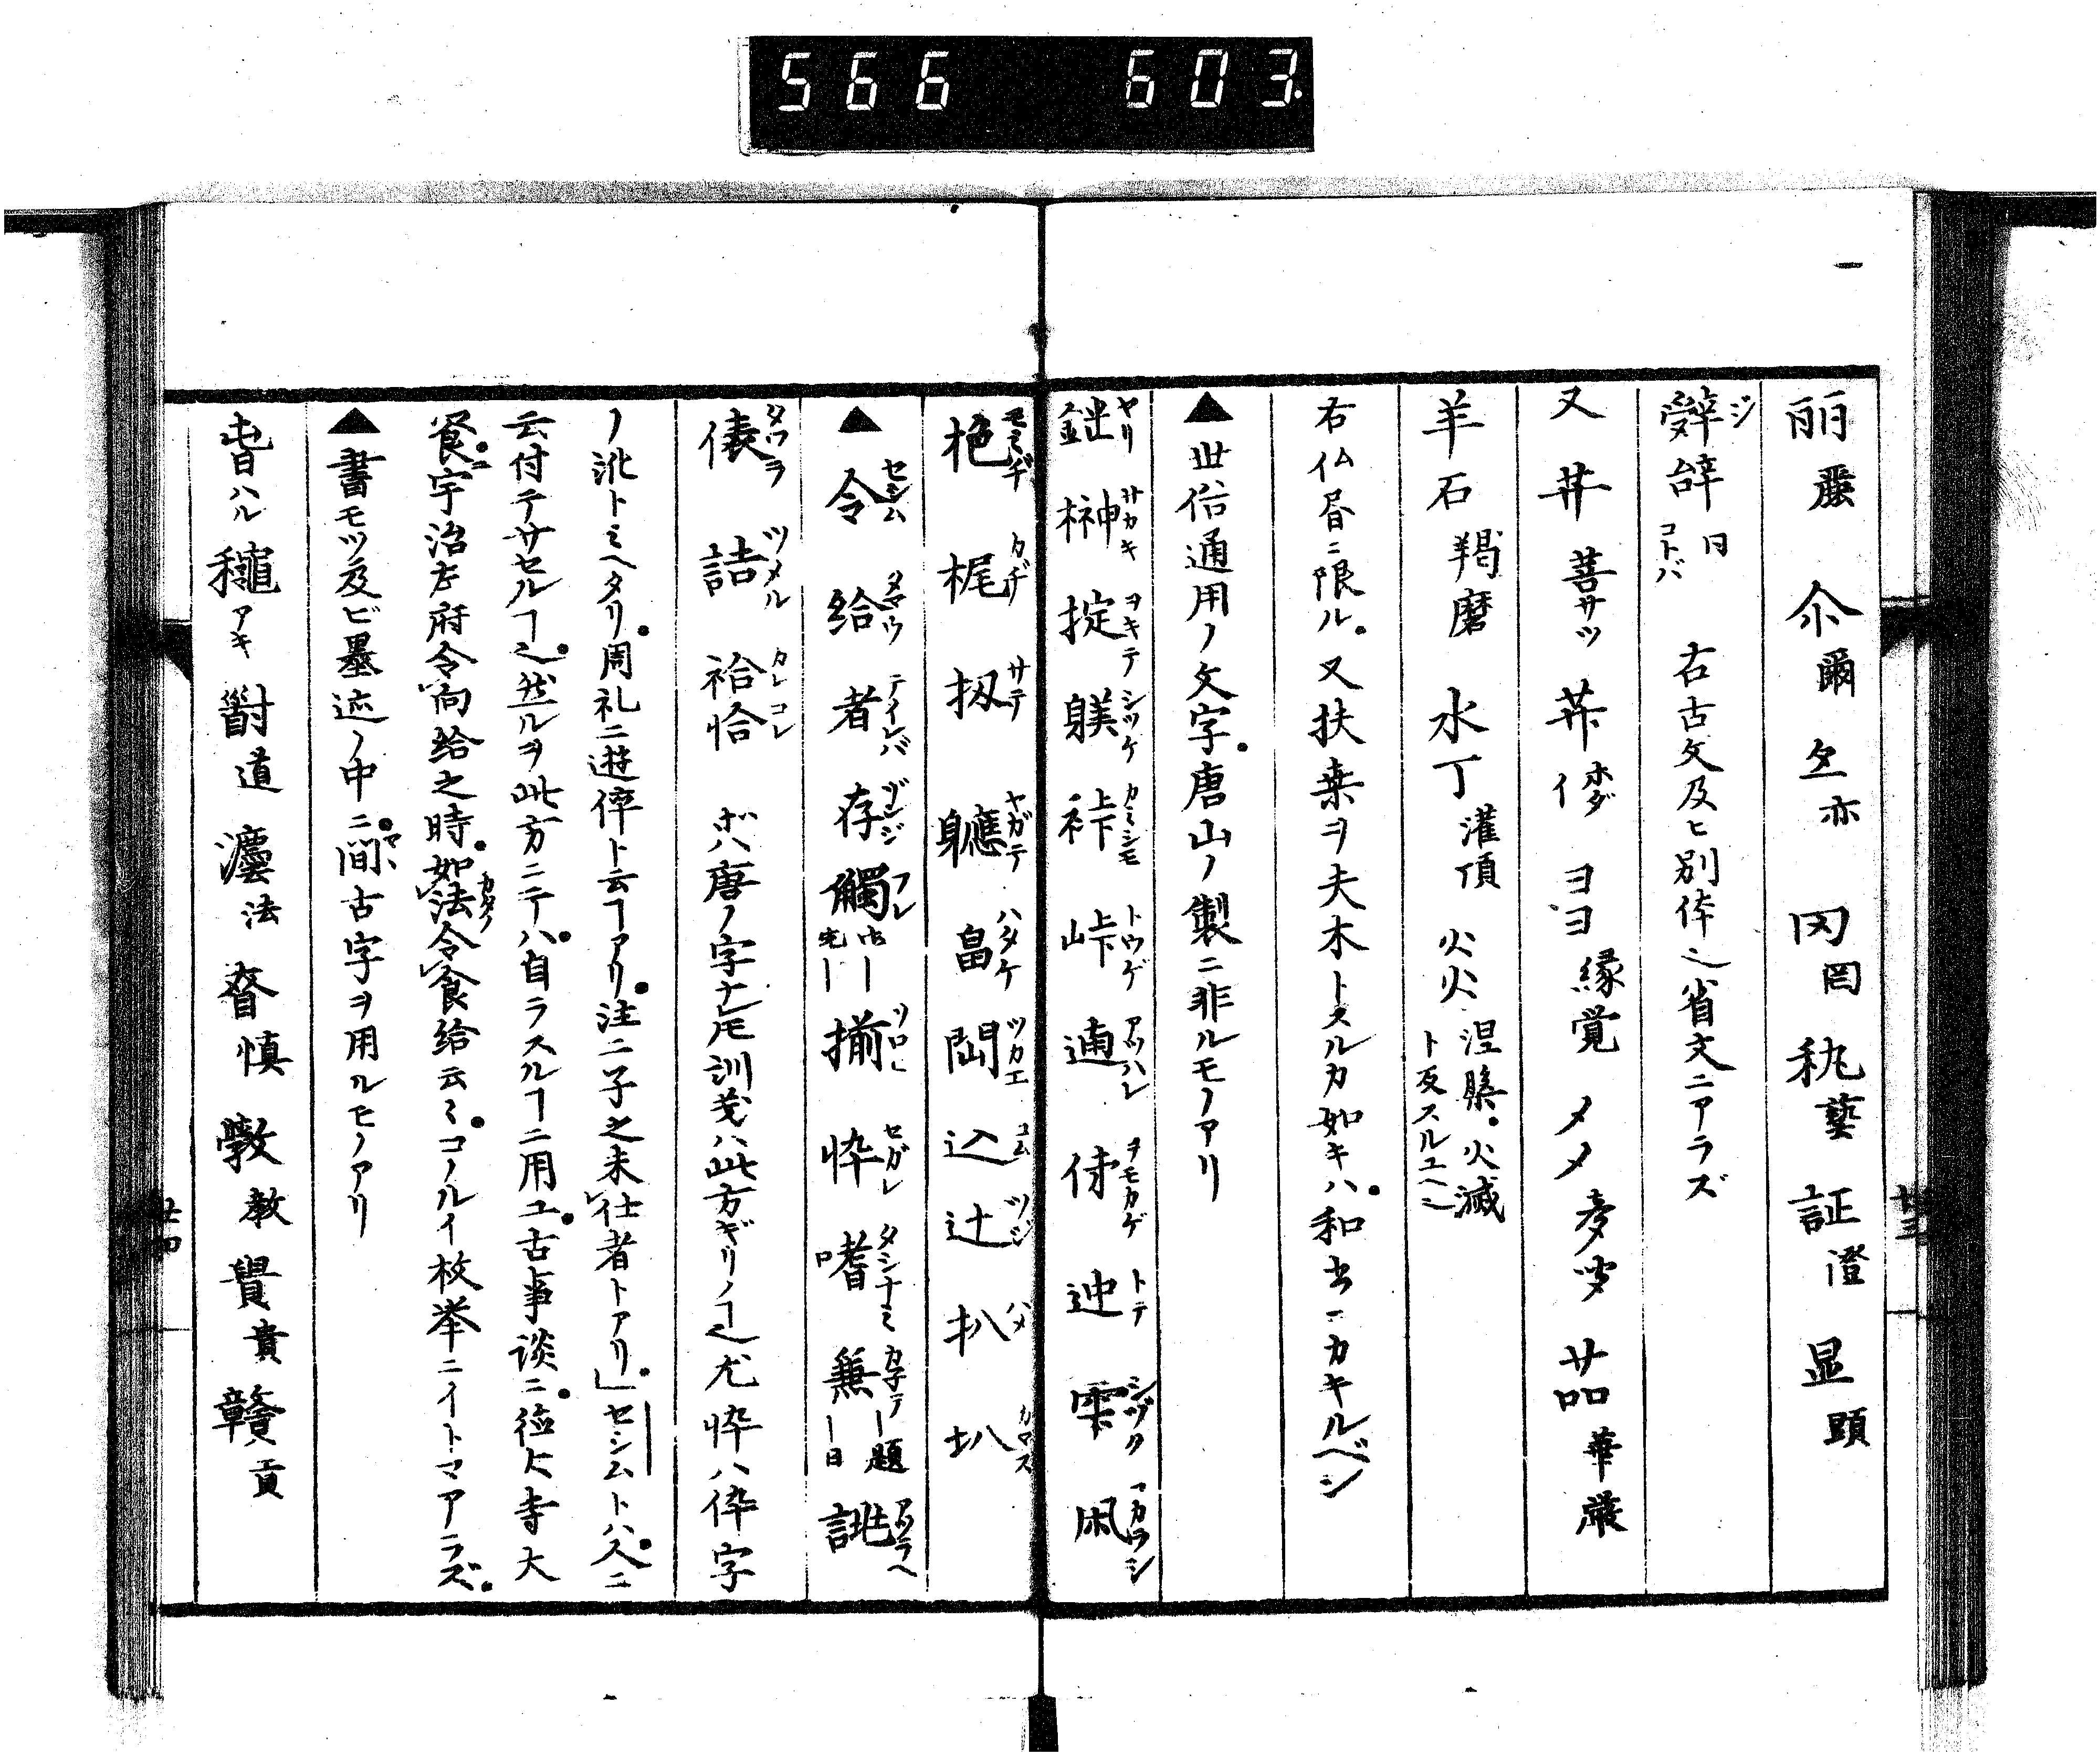 566 603.
丽麗 尒爾 亦 罔 秇藝 証證 显顕
辤辞 ジ 同 コトバ 右古文及ヒ別体也省文ニアラズ
又 菩サツ 縁覚 メメ 華厳
羊石 羯磨 水丁 灌頂 火火 涅槃。火滅ト反スルユヘ也
右仏書ニ限ル。又扶桒ヲ夫木トスルカ如キハ。和書ニカキルベシ
▲世俗通用ノ文字。唐山ノ製ニ非ルモノアリ
ヤリ 榊サカキ 掟ヲキテ 躾シツケ 裃カミシモ 峠トウゲ 遖アツハレ 俤ヲモカゲ 迚トテ 雫シヅク 凩コカラシ
栬モミヂ 梶カヂ 扨サテ 軈ヤガテ 畠ハタケ 閊ツカエ 込コム 辻ツジ 扒ハメ 叺カマス
▲令セシム 給タマウ 者テイレバ 存ゾンジ 觸フレ 揃ソロヒ 忰セガレ 嗜タシナミ 兼カ子テ ー題 ー日 誂アツラヘ
俵タワラ 詰ツメル 袷恰カレコレ 等ハ唐ノ字ナレ𪜈訓義ハ此方ギリノヿ也尤忰ハ倅字
ノ訛トミヘタリ。周礼ニ遊倅ト云ヿアリ。注ニ子之未仕者トアリ」セシムトハ。人ニ
云付テサセルヿ也。然ルヲ此方ニテハ。自ラスルヿニ用ユ。古事談ニ。俭大寺大
餐。宇治左府令向給之時。如法令食給云ミ。コノルイ枚挙ニイトマアラズ。
▲書モツ及ビ墨迹ノ中ニ。間マヽ古字ヲ用ルモノアリ
旾ハル 穐アキ 道 灋法 昚慎 教 貴 贑貢
廿三
廿四